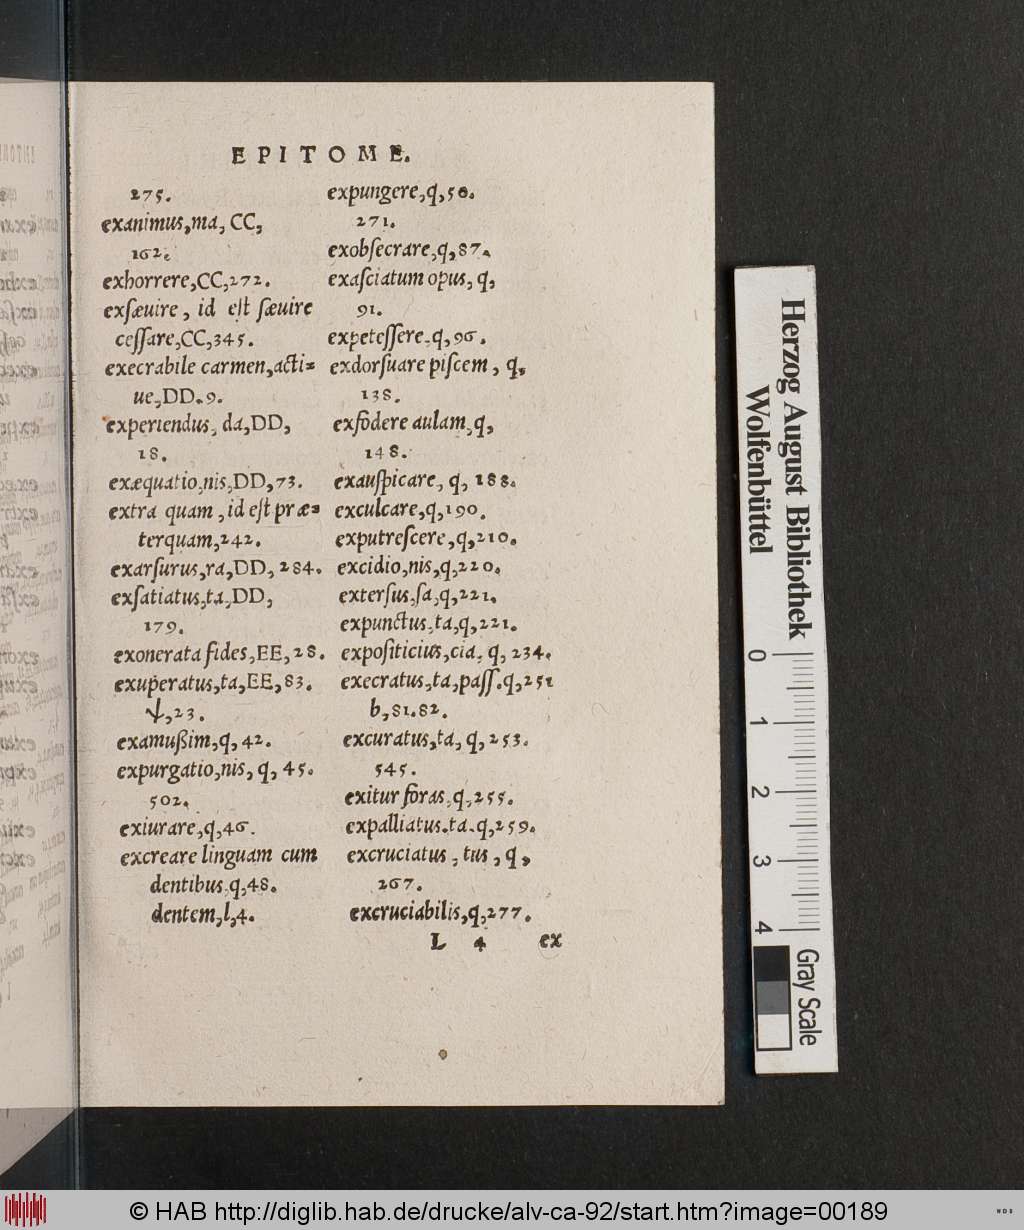 EPITOME.
275.
exanimus,ma, CC,
162.
exhorrere,CC,272.
exſæuire, id eſt ſæuire
ceſſare,CC,345.
execrabile carmen,acti=
ue,DD.9.
experiendus, da,DD,
18.
exæquatio,nis,DD,73.
extra quam, id eſt præ=
terquam,242.
exarſurus,ra,DD, 284.
exſatiatus,ta,DD,
179.
exonerata fides,EE,28.
exuperatus,ta,EE,83.
ψ,23.
examußim,q, 42.
expurgatio,nis, q, 45.
502.
exiurare,q,46.
excreare linguam cum
dentibus q,48.
dentem,l,4.
expungere,q,50.
271.
exobſecrare,q,87.
exaſciatum opus, q,
91.
expeteſſere,q,96.
exdorſuare piſcem, q,
138.
exfodere aulam,q,
148.
exauſpicare, q, 188.
exculcare,q,190.
exputreſcere,q,210.
excidio,nis,q,220.
exterſus,ſa,q,221.
expunctus,ta,q,221.
expoſiticius,cia, q, 234.
execratus,ta,paſſ.q,251
b,81.82.
excuratus,ta, q, 253.
545.
exitur foras,q,255.
expalliatus.ta.q,259.
excruciatus, tus, q,
267.
excruciabilis,q,277.
L 4 ex
Herzog August Bibliothek
Wolfenbüttel
0 1 2 3 4
Gray Scale
© HAB http://diglib.hab.de/drucke/alv-ca-92/start.htm?image=00189